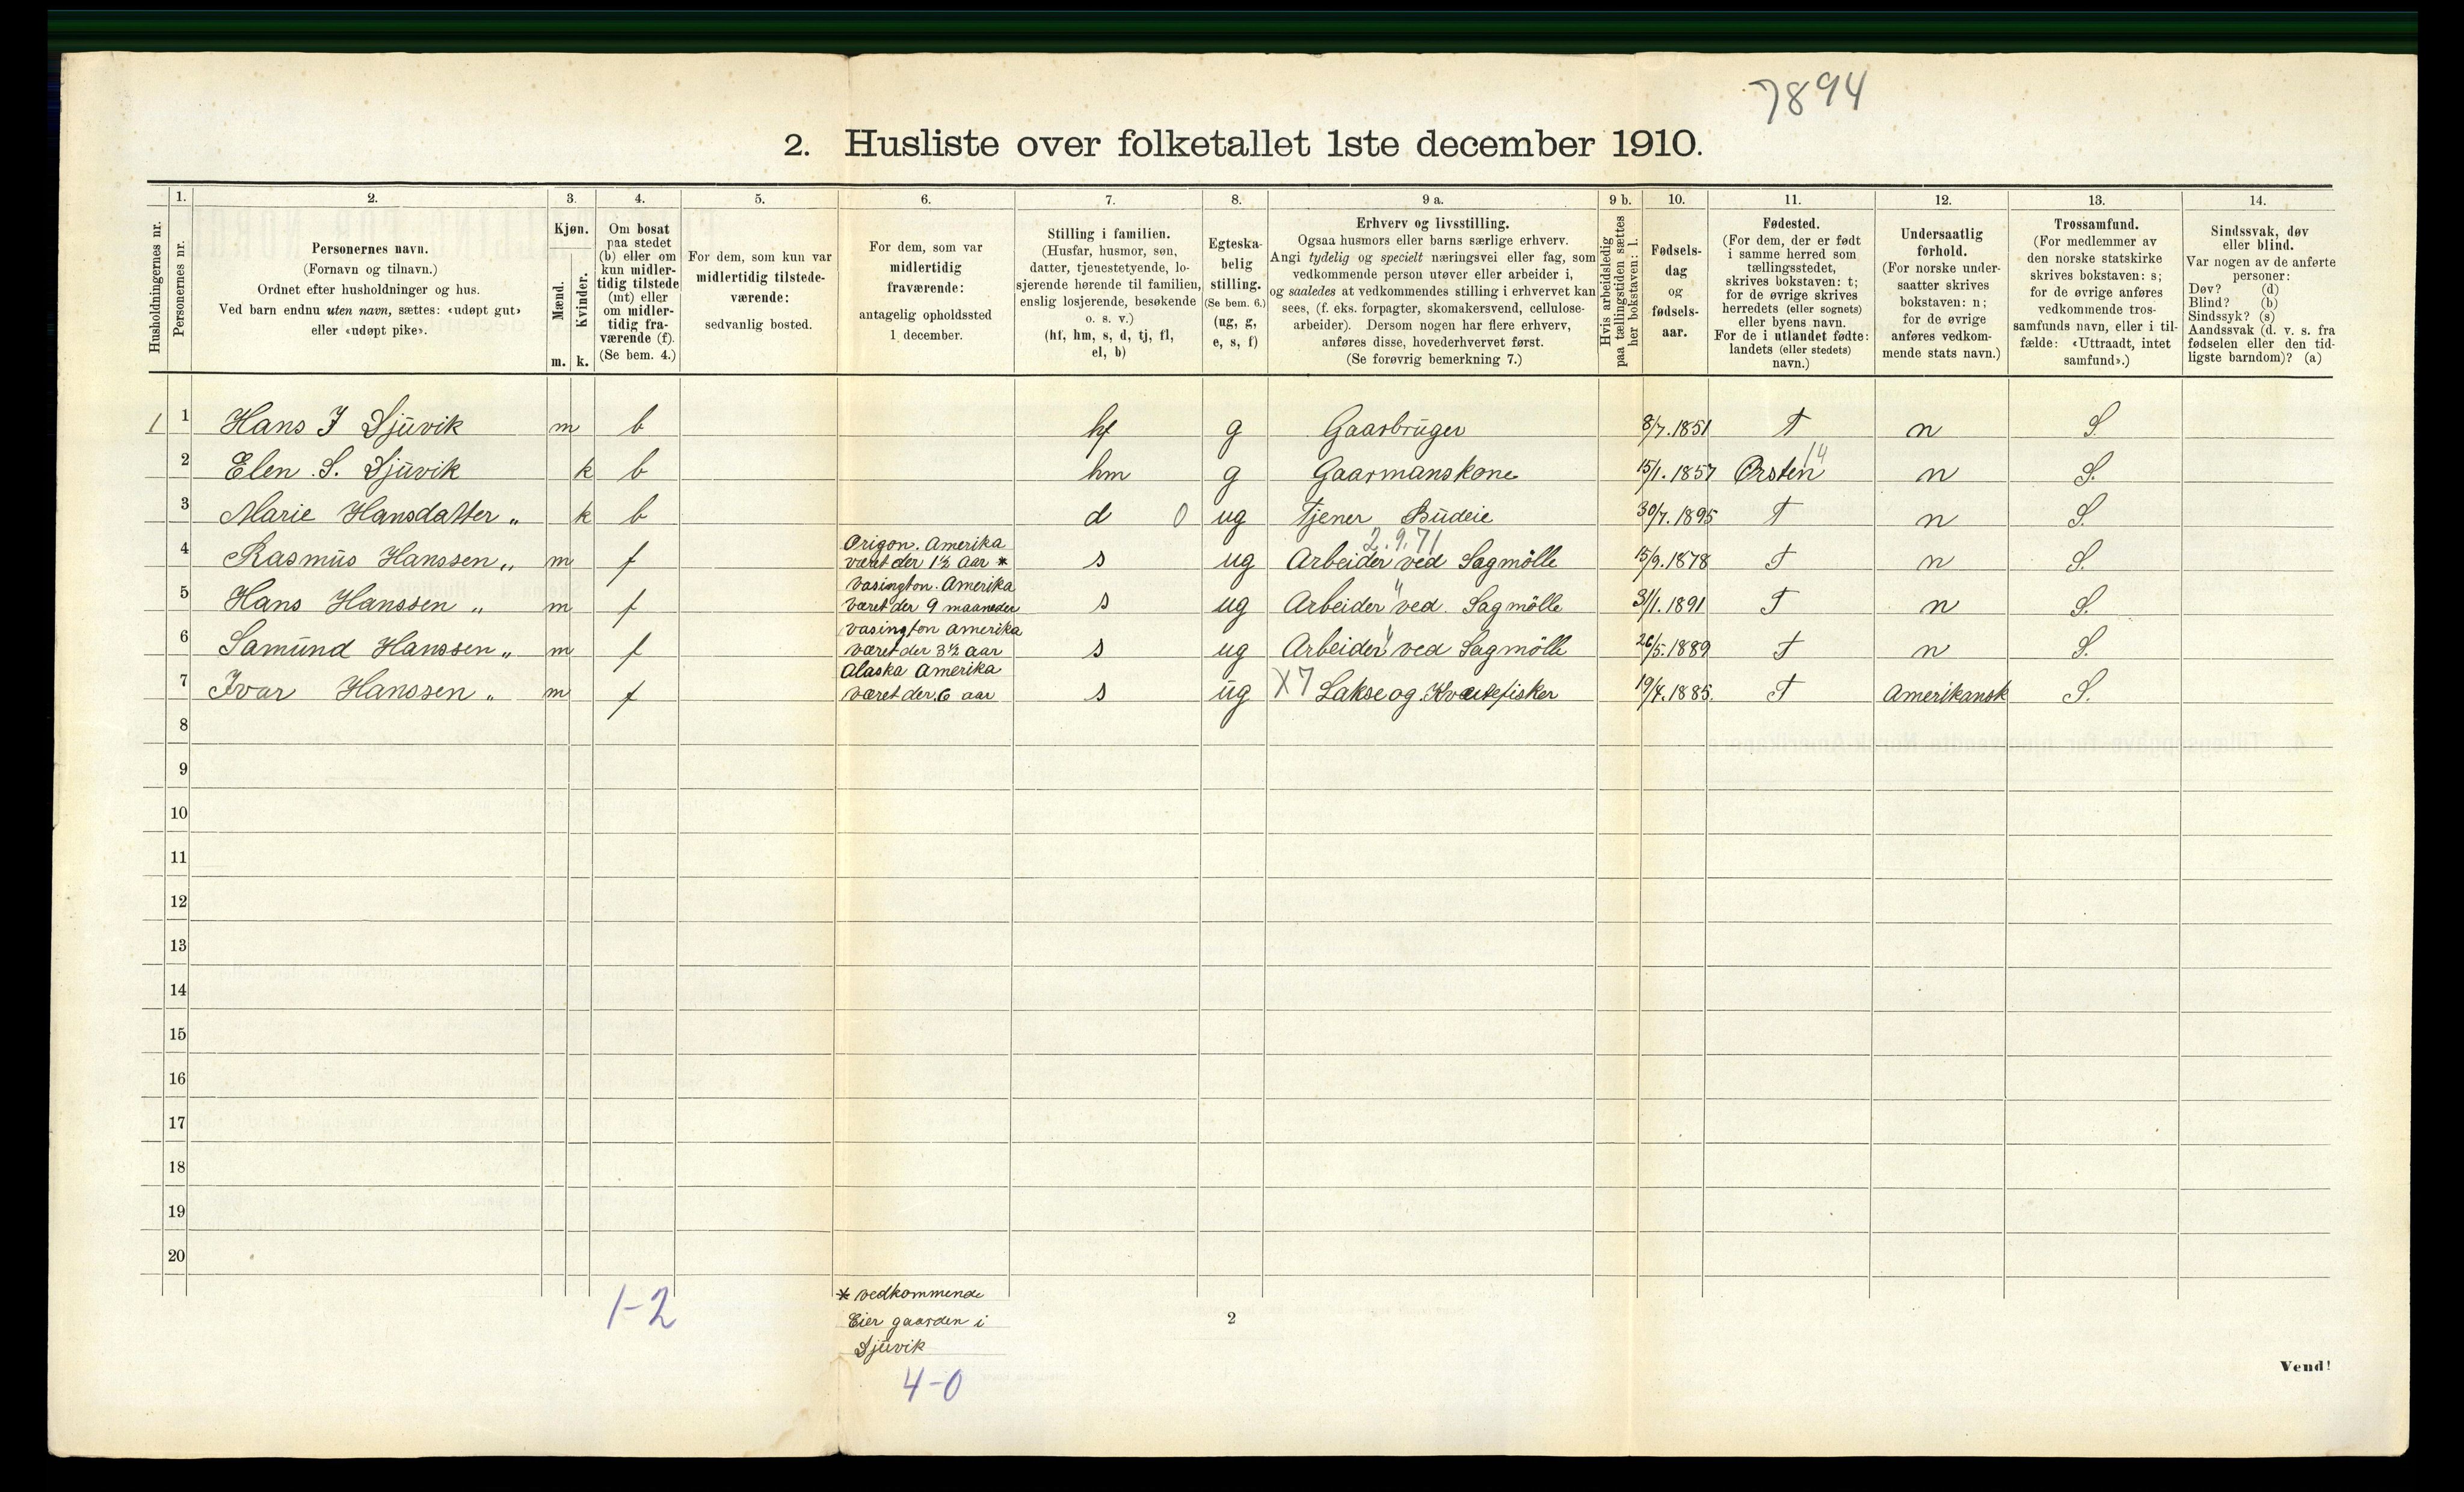 7894
2. Husliste over folketallet 1ste december 1910.
Husholdningernes nr.
1.
Personernes nr.
2.
Personernes navn.
(Fornavn og tilnavn.)
Ordnet efter husholdninger og hus.
Ved barn endnu uten navn, sættes: «udøpt gut»
eller «udøpt pike».
3.
Kjøn.
Mænd.
Kvinder.
m. k.
4.
Om bosat
paa stedet
(b) eller om
kun midler-
tidig tilstede
(mt) eller
om midler-
tidig fra-
værende (f).
(Se bem. 4.)
5.
For dem, som kun var
midlertidig tilstede-
værende:
sedvanlig bosted.
6.
For dem, som var
midlertidig
fraværende:
antagelig opholdssted
1 december.
7.
Stilling i familien.
(Husfar, husmor, søn,
datter, tjenestetyende, lo-
sjerende hørende til familien,
enslig losjerende, besøkende
o. s. v.)
(hf, hm, s, d, tj, fl,
el, b)
8.
Egteska-
belig
stilling.
(Se bem. 6.)
(ug, g,
e, s, f)
9 a.
Erhverv og livsstilling.
Ogsaa husmors eller barns særlige erhverv.
Angi tydelig og specielt næringsvei eller fag, som
vedkommende person utøver eller arbeider i,
og saaledes at vedkommendes stilling i erhvervet kan
sees, (f. eks. forpagter, skomakersvend, cellulose-
arbeider). Dersom nogen har flere erhverv,
anføres disse, hovederhvervet først.
(Se forøvrig bemerkning 7.)
9 b.
Hvis arbeidsledig
paa tællingstiden sættes
her bokstaven: l.
10.
Fødsels-
dag
og
fødsels-
aar.
11.
Fødested.
(For dem, der er født
i samme herred som
tællingsstedet,
skrives bokstaven: t;
for de øvrige skrives
herredets (eller sognets)
eller byens navn.
For de i utlandet fødte:
landets (eller stedets)
navn.)
12.
Undersaatlig
forhold.
(For norske under-
saatter skrives
bokstaven: n;
for de øvrige
anføres vedkom-
mende stats navn.)
13.
Trossamfund.
(For medlemmer av
den norske statskirke
skrives bokstaven: s;
for de øvrige anføres
vedkommende tros-
samfunds navn, eller i til-
fælde: «Uttraadt, intet
samfund».)
14.
Sindssvak, døv
eller blind.
Var nogen av de anførte
personer:
Døv? (d)
Blind? (b)
Sindssyk? (s)
Aandssvak (d. v. s. fra
fødselen eller den tid-
ligste barndom)? (a)
1 1 Hans J Sjüvik m b hf g Gaarbrüger 8/7.1851 T n S.
14
2 Elen S. Sjüvik k b hm g Gaarmanskone 15/1.1857 Ørsten n S.
3 Marie Hansdatter „ k b d 0 ug Tjener Büdeie 30/7.1895 T n S.
Origon. Amerika
2.9.71
4 Rasmüs Hanssen „ m f været der 1½ Aar * s ug Arbeider ved Sagmölle 15/9.1878 T n S.
Vasington. Amerika
5 Hans Hanssen „ m f Været der 9 maaneder s ug Arbeider " ved. Sagmölle 31/1.1891 T n S.
Vasington Amerika
6 Samünd Hanssen „ m f været der 3½ aar s ug Arbeider " ved Sagmölle 26/5.1889 T n S.
Alaska Amerika
7 Ivar Hanssen „ m f været der 6 aar s üg X7 Lakse og Kveitefisker 19/4.1885. T Amerikansk S.
8
9
10
11
12
13
14
15
16
17
18
19
20
1-2
* vedkommende
Eier gaarden i
Sjüvik
4-0
2
Vend!